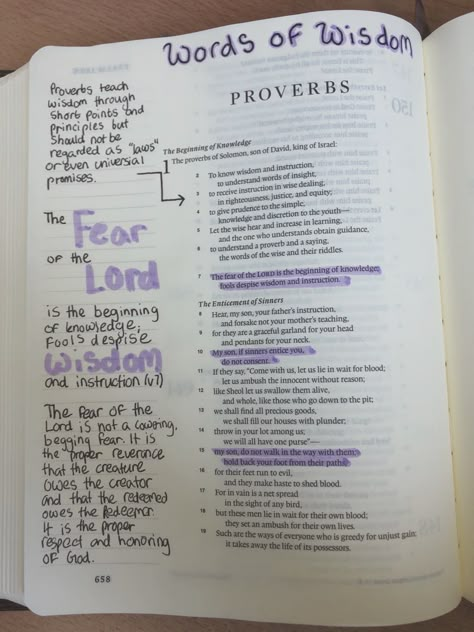 Words of Wisdom
Proverbs teach
wisdom through
short points and
principles but
should not be
regarded as "laws"
or even universal
promises.
The
Fear
of the
Lord
is the beginning
of knowledge;
fools despise
wisdom
and instruction (v7)
The fear of the
Lord is not a cowering,
begging fear. It is
the proper reverence
that the creature
owes the creator
and that the redeemed
owes the Redeemer.
It is the proper
respect and honoring
of God.
658
PROVERBS
The Beginning of Knowledge
1 The proverbs of Solomon, son of David, king of Israel:
2 To know wisdom and instruction,
to understand words of insight,
3 to receive instruction in wise dealing,
in righteousness, justice, and equity;
4 to give prudence to the simple,
knowledge and discretion to the youth—
5 Let the wise hear and increase in learning,
and the one who understands obtain guidance,
6 to understand a proverb and a saying,
the words of the wise and their riddles.
7 The fear of the LORD is the beginning of knowledge;
fools despise wisdom and instruction.
The Enticement of Sinners
8 Hear, my son, your father's instruction,
and forsake not your mother's teaching,
9 for they are a graceful garland for your head
and pendants for your neck.
10 My son, if sinners entice you,
do not consent.
11 If they say, "Come with us, let us lie in wait for blood;
let us ambush the innocent without reason;
12 like Sheol let us swallow them alive,
and whole, like those who go down to the pit;
13 we shall find all precious goods,
we shall fill our houses with plunder;
14 throw in your lot among us;
we will all have one purse"—
15 my son, do not walk in the way with them;
hold back your foot from their paths,
16 for their feet run to evil,
and they make haste to shed blood.
17 For in vain is a net spread
in the sight of any bird,
18 but these men lie in wait for their own blood;
they set an ambush for their own lives.
19 Such are the ways of everyone who is greedy for unjust gain;
it takes away the life of its possessors.